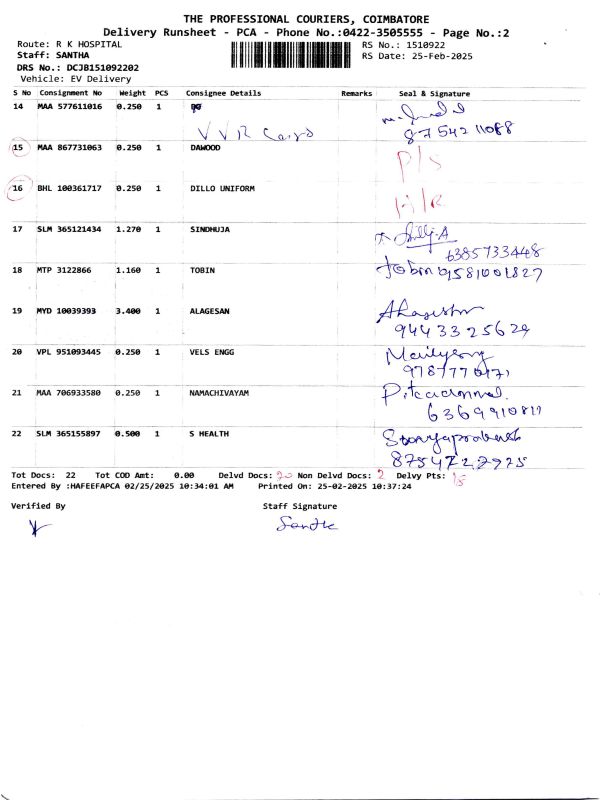 THE PROFESSIONAL COURIERS, COIMBATORE
Delivery Runsheet - PCA - Phone No.:0422-3505555 - Page No.:2
Route: R K HOSPITAL RS No.: 1510922
Staff: SANTHA RS Date: 25-Feb-2025
DRS No.: DCJB151092202
Vehicle: EV Delivery
S No Consignment No Weight PCS Consignee Details Remarks Seal & Signature
14 MAA 577611016 0.250 1
V V R Cars 8754211088
15 MAA 867731063 0.250 1 DAWOOD P/S
16 BHL 100361717 0.250 1 DILLO UNIFORM
17 SLM 365121434 1.270 1 SINDHUJA
6385733448
18 MTP 3122866 1.160 1 TOBIN Tobin 9581001827
19 MYD 10039393 3.400 1 ALAGESAN
9443325629
20 VPL 951093445 0.250 1 VELS ENGG
21 MAA 706933580 0.250 1 NAMACHIVAYAM
6369910811
22 SLM 365155897 0.500 1 S HEALTH
8754727925
Tot Docs: 22 Tot COD Amt: 0.00 Delvd Docs: 20 Non Delvd Docs: 2 Delvy Pts: 15
Entered By :HAFEEFAPCA 02/25/2025 10:34:01 AM Printed On: 25-02-2025 10:37:24
Verified By Staff Signature
Santha